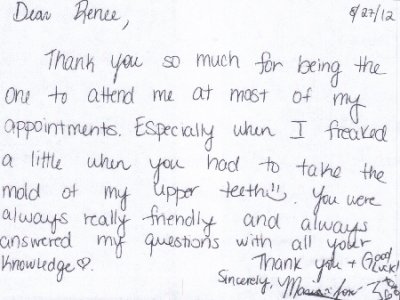 Dear Renee, 8/27/12
Thank you so much for being the
one to attend me at most of my
appointments. Especially when I freaked
a little when you had to take the
mold of my upper teeth!!. You were
always really friendly and always
answered my questions with all your
knowledge♡.
Thank you + Good Luck!
Sincerely,